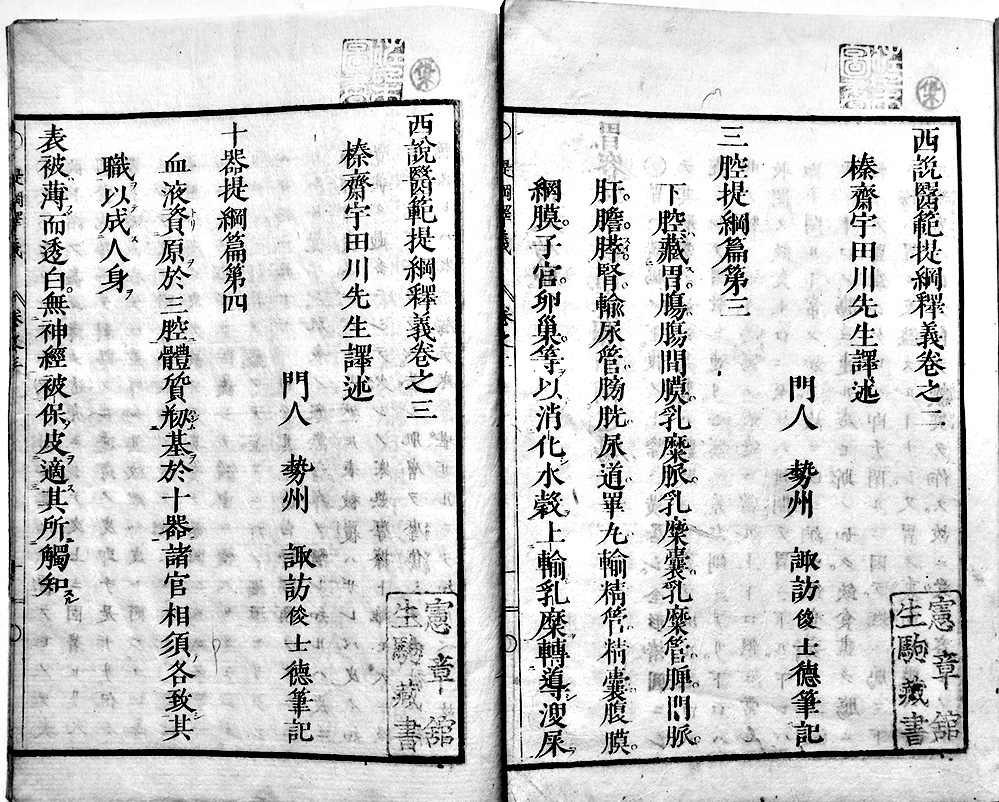 西說醫範提綱釋義卷之二
榛齋宇田川先生譯述
門人 勢州 諏訪俊士德筆記
三腔提綱篇第三
下腔藏胃腸腸間膜乳糜脈乳糜囊乳糜管脾門脈
肝膽膵腎輸尿管膀胱尿道睾丸輸精管精囊腹膜
網膜子宮卵巢等以消化水穀上輸乳糜轉導溲屎
憲章舘
生駒藏書
葉
西說醫範提綱釋義卷之三
榛齋宇田川先生譯述
門人 勢州 諏訪俊士德筆記
十器提綱篇第四
血液資原於三腔體質剏基於十器諸官相須各致其
職以成人身
表被薄而透白無神經被保皮適其所觸知
憲章舘
生駒藏書
葉